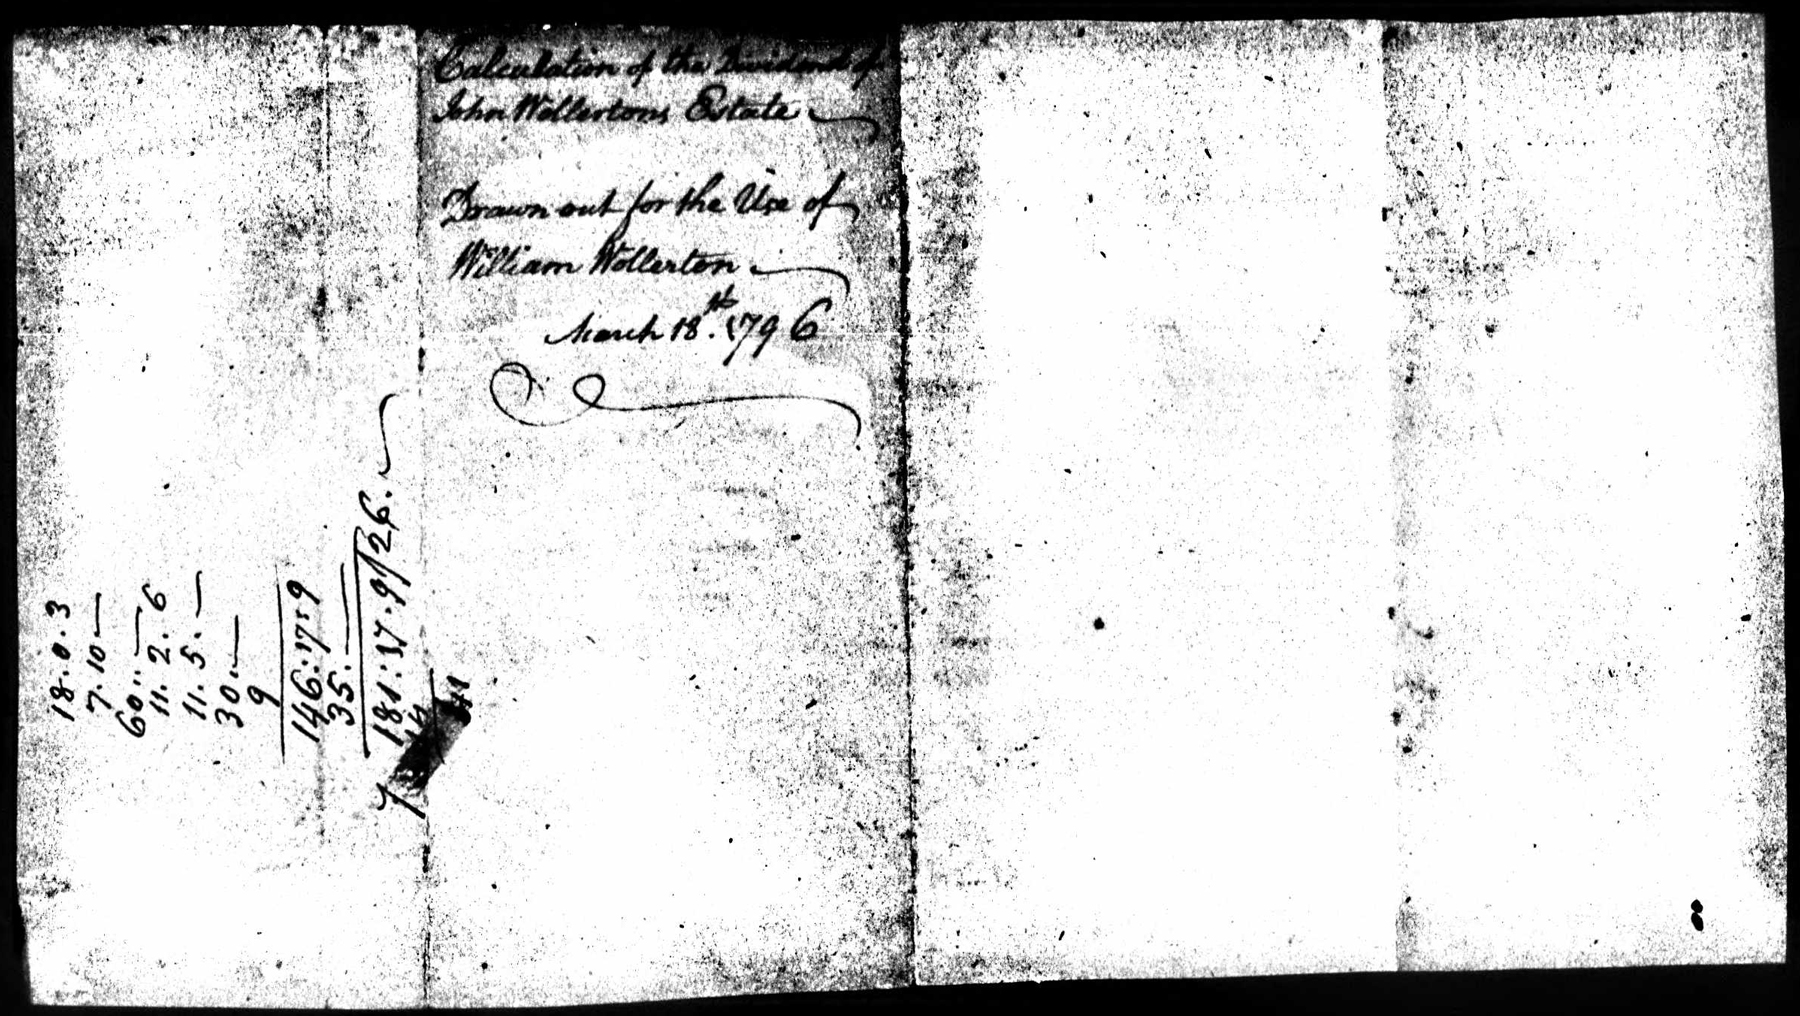 Calculation of the Dividend of
John Wollertons Estate
Drawn out for the Use of
William Wollerton
March 18th. 1796
18. 0. 3
7. 10 —
60 : : —
11. 2. 6
11. 5. —
30 : : —
9
146 : 17 : 9
35. —
181 : 17 : 9 / 26.